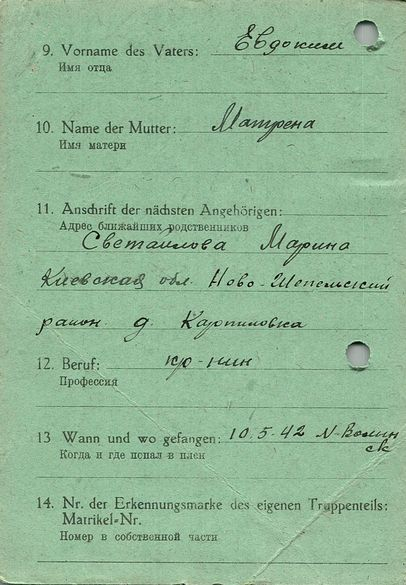 9. Vorname des Vaters: Евдоким
Имя отца
10. Name der Mutter: Матрена
Имя матери
11. Anschrift der nächsten Angehörigen:
Адрес ближайших родственников
Светаилова Марина
Киевская обл. Ново-Шепельский
район д. Карпиловка
12. Beruf: кр-нин
Профессия
13 Wann und wo gefangen: 10.5-42 N-Волин
ск
Когда и где попал в плен
14. Nr. der Erkennungsmarke des eigenen Truppenteils:
Matrikel-Nr.
Номер в собственной части